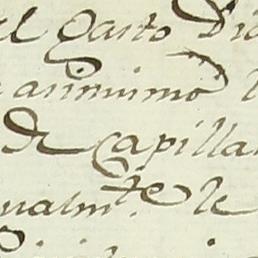 el Gasto Dia
asimismo l
de Capilla
ualmte. le